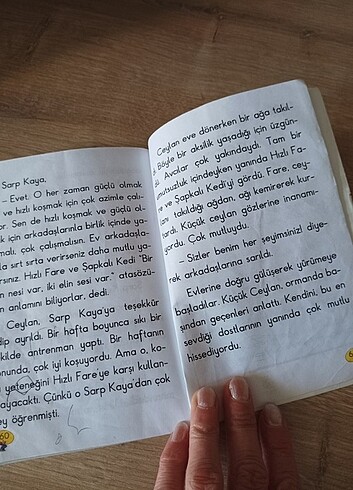 Sarp Kaya.
– Evet. O her zaman güçlü olmak
ve hızlı koşmak için çok azimle çalı-
or. Sen de hızlı koşmak ve güçlü ol-
k için arkadaşlarınla birlik içinde ya-
malı, çok çalışmalısın. Ev arkadaşla-
la sırt sırta verirseniz daha mutlu ya-
rsınız. Hızlı Fare ve Şapkalı Kedi "Bir
n nesi var, iki elin sesi var." atasözü-
n anlamını biliyorlar, dedi.
Ceylan, Sarp Kaya'ya teşekkür
ip ayrıldı. Bir hafta boyunca sıkı bir
kilde antrenman yaptı. Bir haftanın
onunda, çok iyi koşuyordu. Ama o, ko-
yeteneğini Hızlı Fare'ye karşı kullan-
ayacaktı. Çünkü o Sarp Kaya'dan çok
ey öğrenmişti.
60
Ceylan eve dönerken bir ağa takıl-
Böyle bir aksilik yaşadığı için üzgün-
ü. Avcılar çok yakındaydı. Tam bir
umutsuzluk içindeyken yanında Hızlı Fa-
e ve Şapkalı Kedi'yi gördü. Fare, cey-
takıldığı ağdan, ağı kemirerek kur-
ardı. Küçük ceylan gözlerine inanamı-
yordu. Çok mutluydu.
– Sizler benim her şeyimsiniz! diye-
rek arkadaşlarına sarıldı.
Evlerine doğru gülüşerek yürümeye
başladılar. Küçük Ceylan, ormanda ba-
şından geçenleri anlattı. Kendini, bu en
sevdiği dostlarının yanında çok mutlu
hissediyordu.